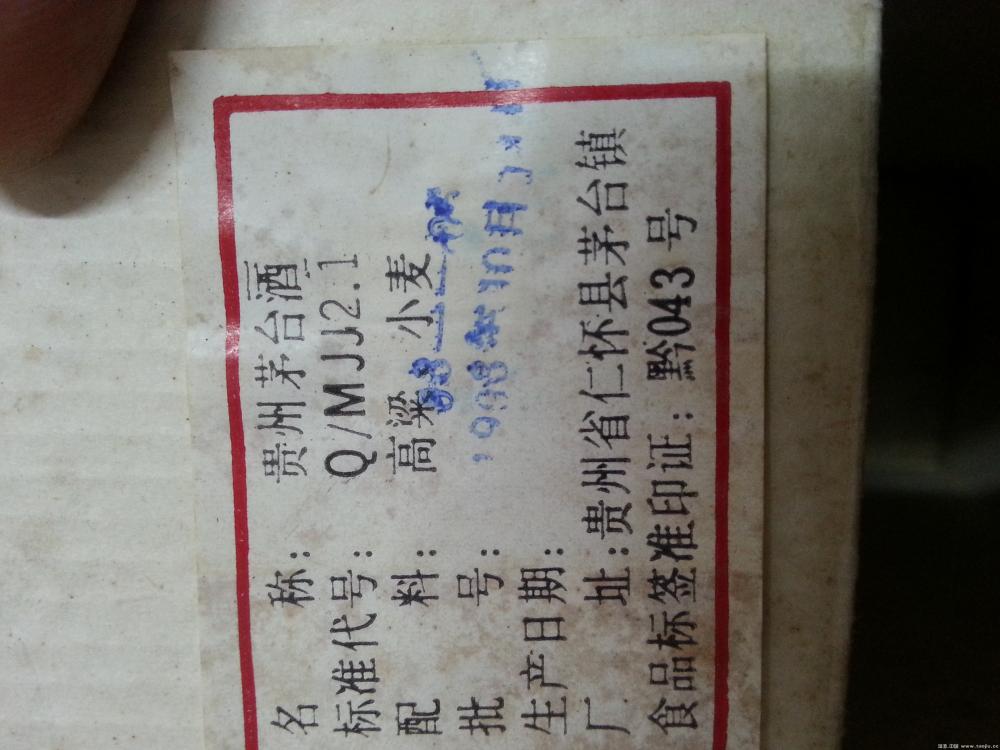 名 称：贵州茅台酒
标准代号：Q/MJJ2.1
配 料：高粱 小麦
批 号：
生产日期：1998年10月
厂 址：贵州省仁怀县茅台镇
食品标签准印证：黔043号